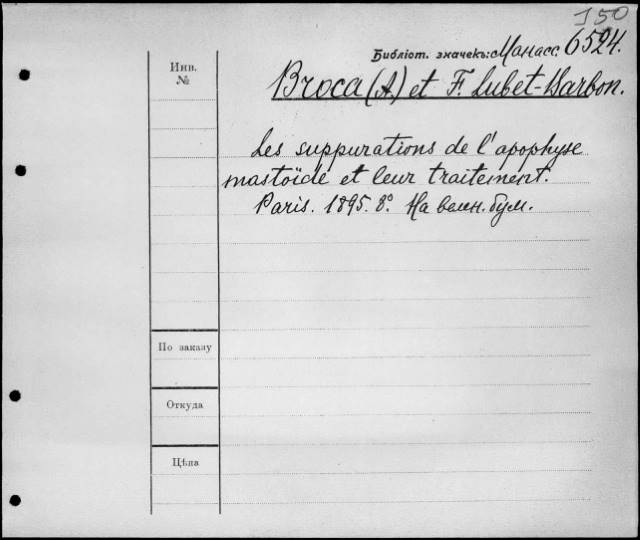 150
Библіот. значекъ: Манасс. 6524.
Инв.
№
Broca (A.) et F. Lubet-Barbon.
Les suppurations de l'apophyse
mastoïde et leur traitement.
Paris. 1895. 8°. На велен. бум.
По заказу
Откуда
Цѣна